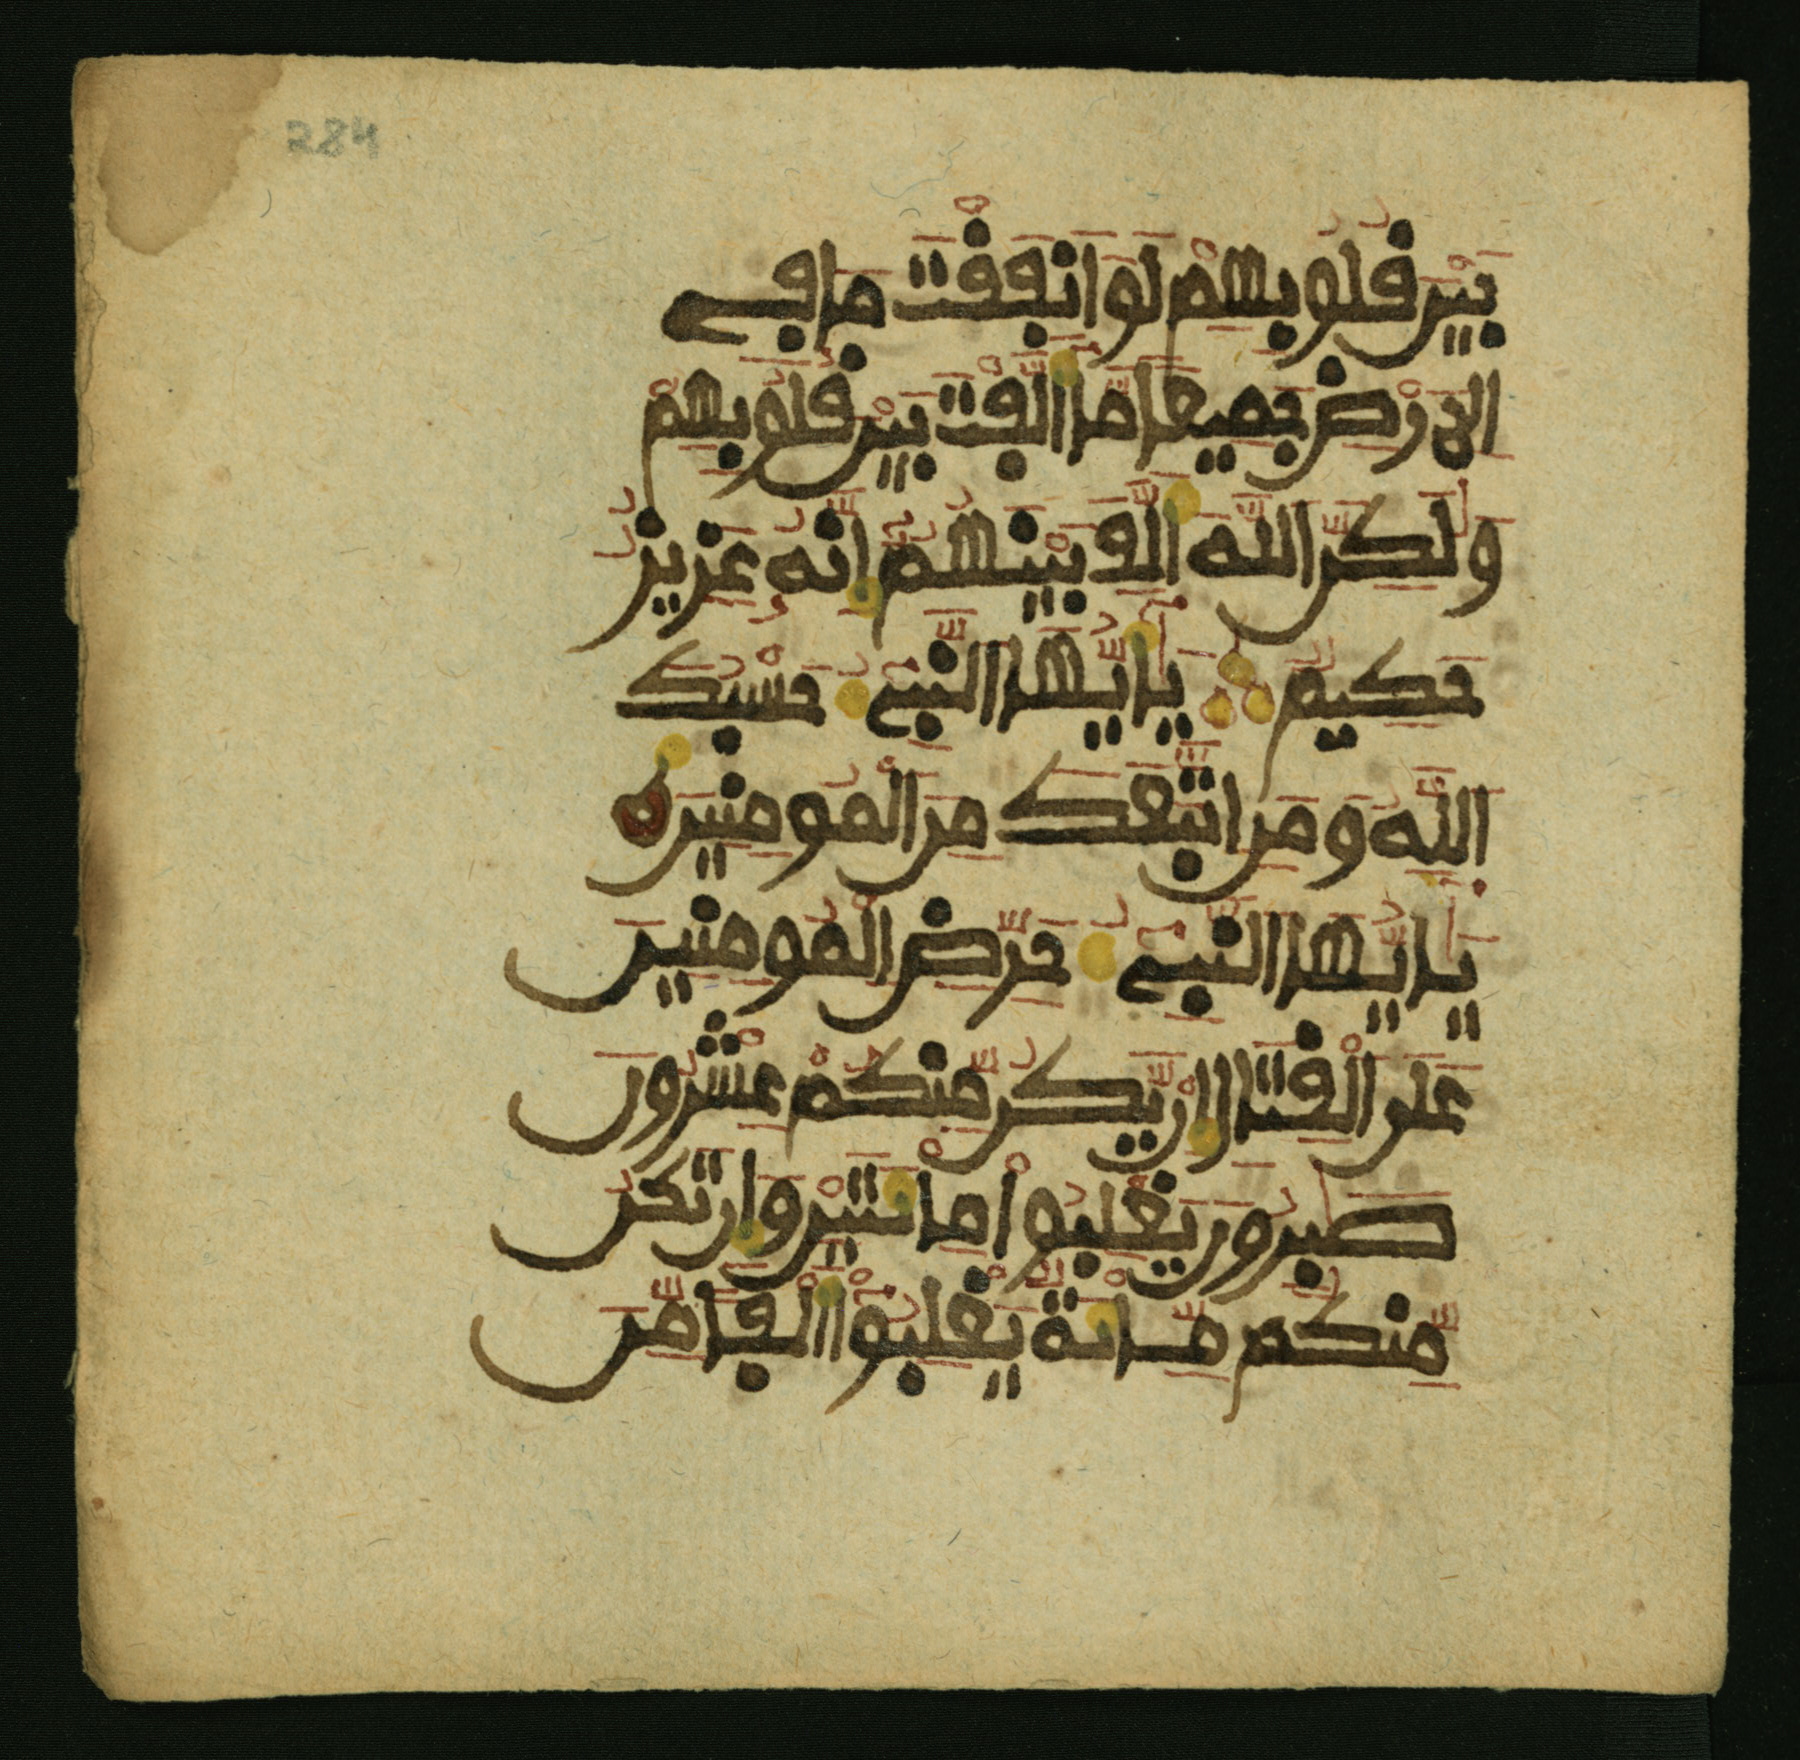 284
بَيْنَ قُلُوبِهِمْ لَوَ اَنفَقْتَ مَا فِے
اِ۬لَارْضِ جَمِيعاً مَّا أَلَّفْتَ بَيْنَ قُلُوبِهِمْ
وَلَٰكِنَّ اَ۬للَّهَ أَلَّفَ بَيْنَهُمُۥٓ إِنَّهُۥ عَزِيزٌ
حَكِيمٌ يَٰٓأَيُّهَا اَ۬لنَّبِےٓءُ حَسْبُكَ
اَ۬للَّهُ وَمَنِ اِ۪تَّبَعَكَ مِنَ اَ۬لْمُومِنِينَ ه
يَٰٓأَيُّهَا اَ۬لنَّبِےٓءُ حَرِّضِ اِ۬لْمُومِنِينَ
عَلَى اَ۬لْقِتَالِ إِنْ يَّكُن مِّنكُمْ عِشْرُونَ
صَٰبِرُونَ يَغْلِبُواْ مِاْئَتَيْنِ وَإِن تَكُن
مِّنكُم مِّاْئَةٌ يَغْلِبُوٓاْ أَلْفاً مِّنَ